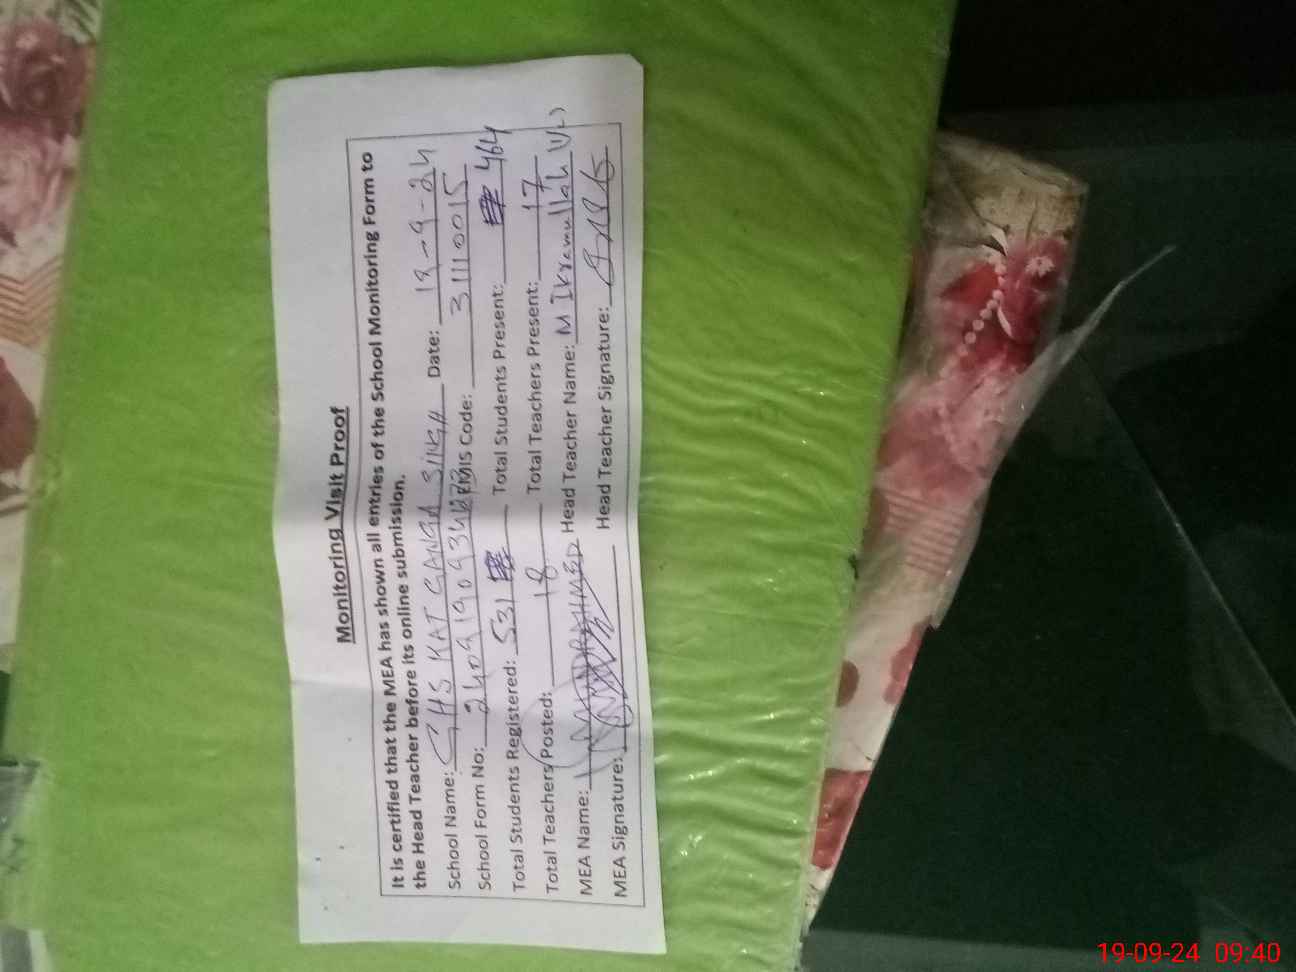 Monitoring Visit Proof
It is certified that the MEA has shown all entries of the School Monitoring Form to
the Head Teacher before its online submission.
School Name: GHS KAT GANGA SINGH Date: 19-9-24
School Form No: EMIS Code: 31110015
Total Students Registered: 531 Total Students Present: 464
Total Teachers Posted: 18 Total Teachers Present: 17
MEA Name: AHMED Head Teacher Name: M Ikramullah
MEA Signature: Head Teacher Signature:
19-09-24 09:40